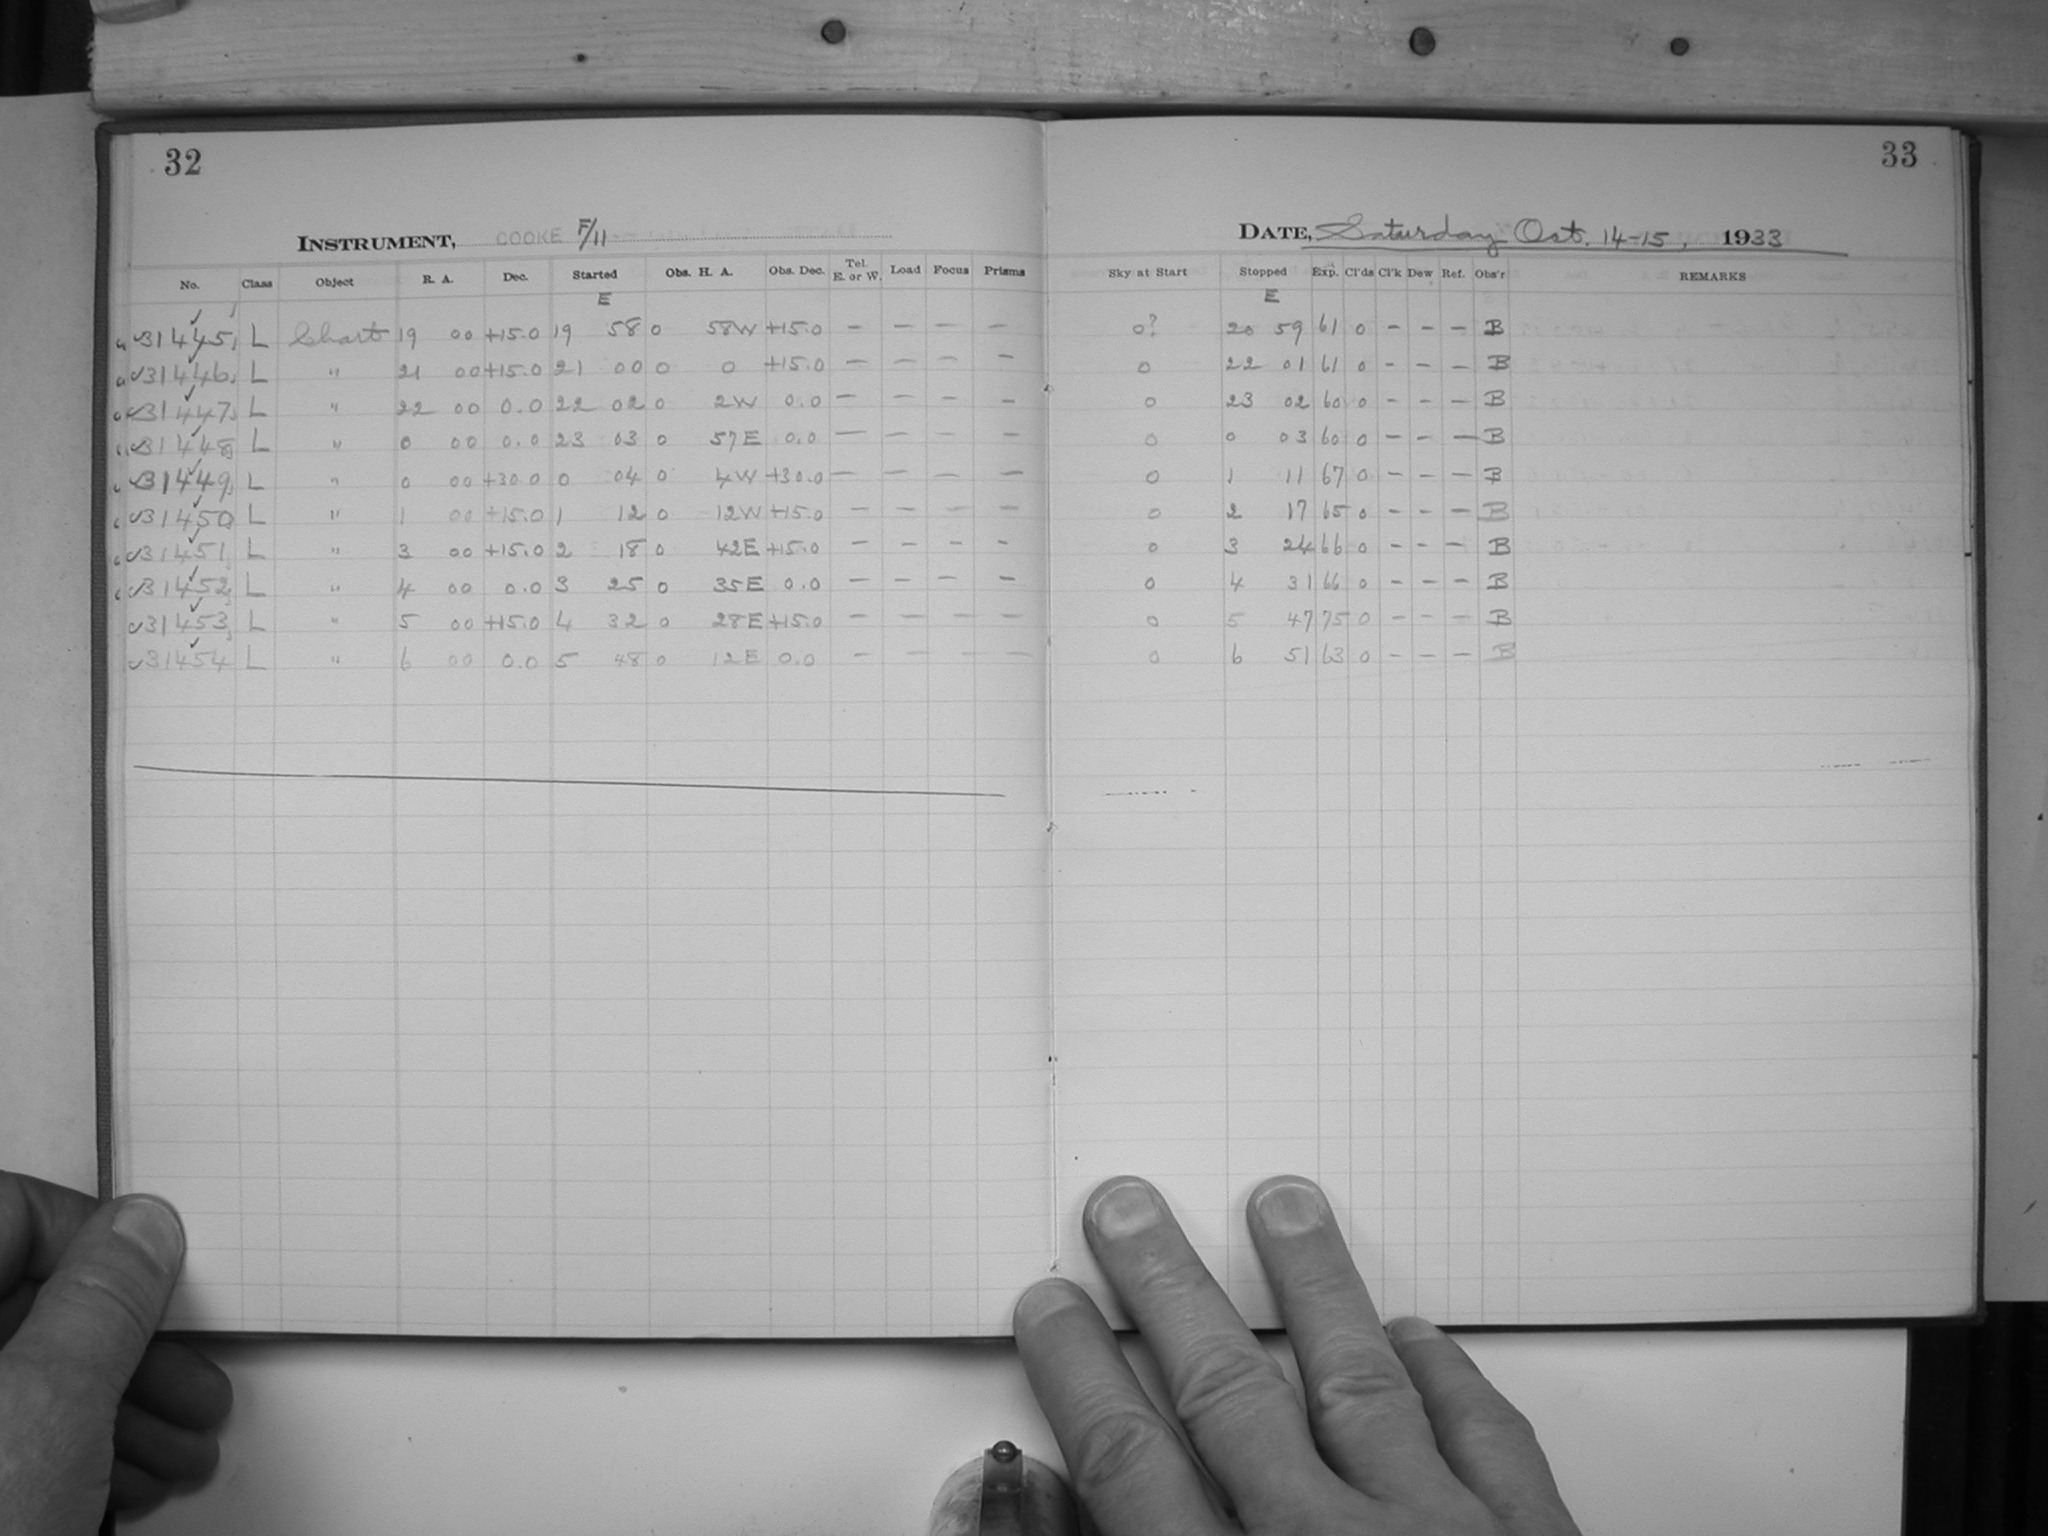 32
INSTRUMENT, COOKE F/11
No. Class Object R. A. Dec. Started Obs. H. A. Obs. Dec. Tel. E. or W. Load Focus Prisms
E
31445 L Chart 19 00 +15.0 19 58 0 58W +15.0 – – – –
31446 L " 21 00 +15.0 21 00 0 0 +15.0 – – – –
31447 L " 22 00 0.0 22 02 0 2W 0.0 – – – –
31448 L " 0 00 0.0 23 03 0 57E 0.0 – – – –
31449 L " 0 00 +30.0 0 04 0 4W +30.0 – – – –
31450 L " 1 00 +15.0 1 12 0 12W +15.0 – – – –
31451 L " 3 00 +15.0 2 18 0 42E +15.0 – – – –
31452 L " 4 00 0.0 3 25 0 35E 0.0 – – – –
31453 L " 5 00 +15.0 4 32 0 28E +15.0 – – – –
31454 L " 6 00 0.0 5 48 0 12E 0.0 – – – –
33
DATE, Saturday Oct. 14-15, 1933
Sky at Start Stopped Exp. Cl'ds Cl'k Dew Ref. Obs'r REMARKS
E
0? 20 59 61 0 – – – B
0 22 01 61 0 – – – B
0 23 02 60 0 – – – B
0 0 03 60 0 – – – B
0 1 11 67 0 – – – B
0 2 17 65 0 – – – B
0 3 24 66 0 – – – B
0 4 31 66 0 – – – B
0 5 47 75 0 – – – B
0 6 51 63 0 – – – B